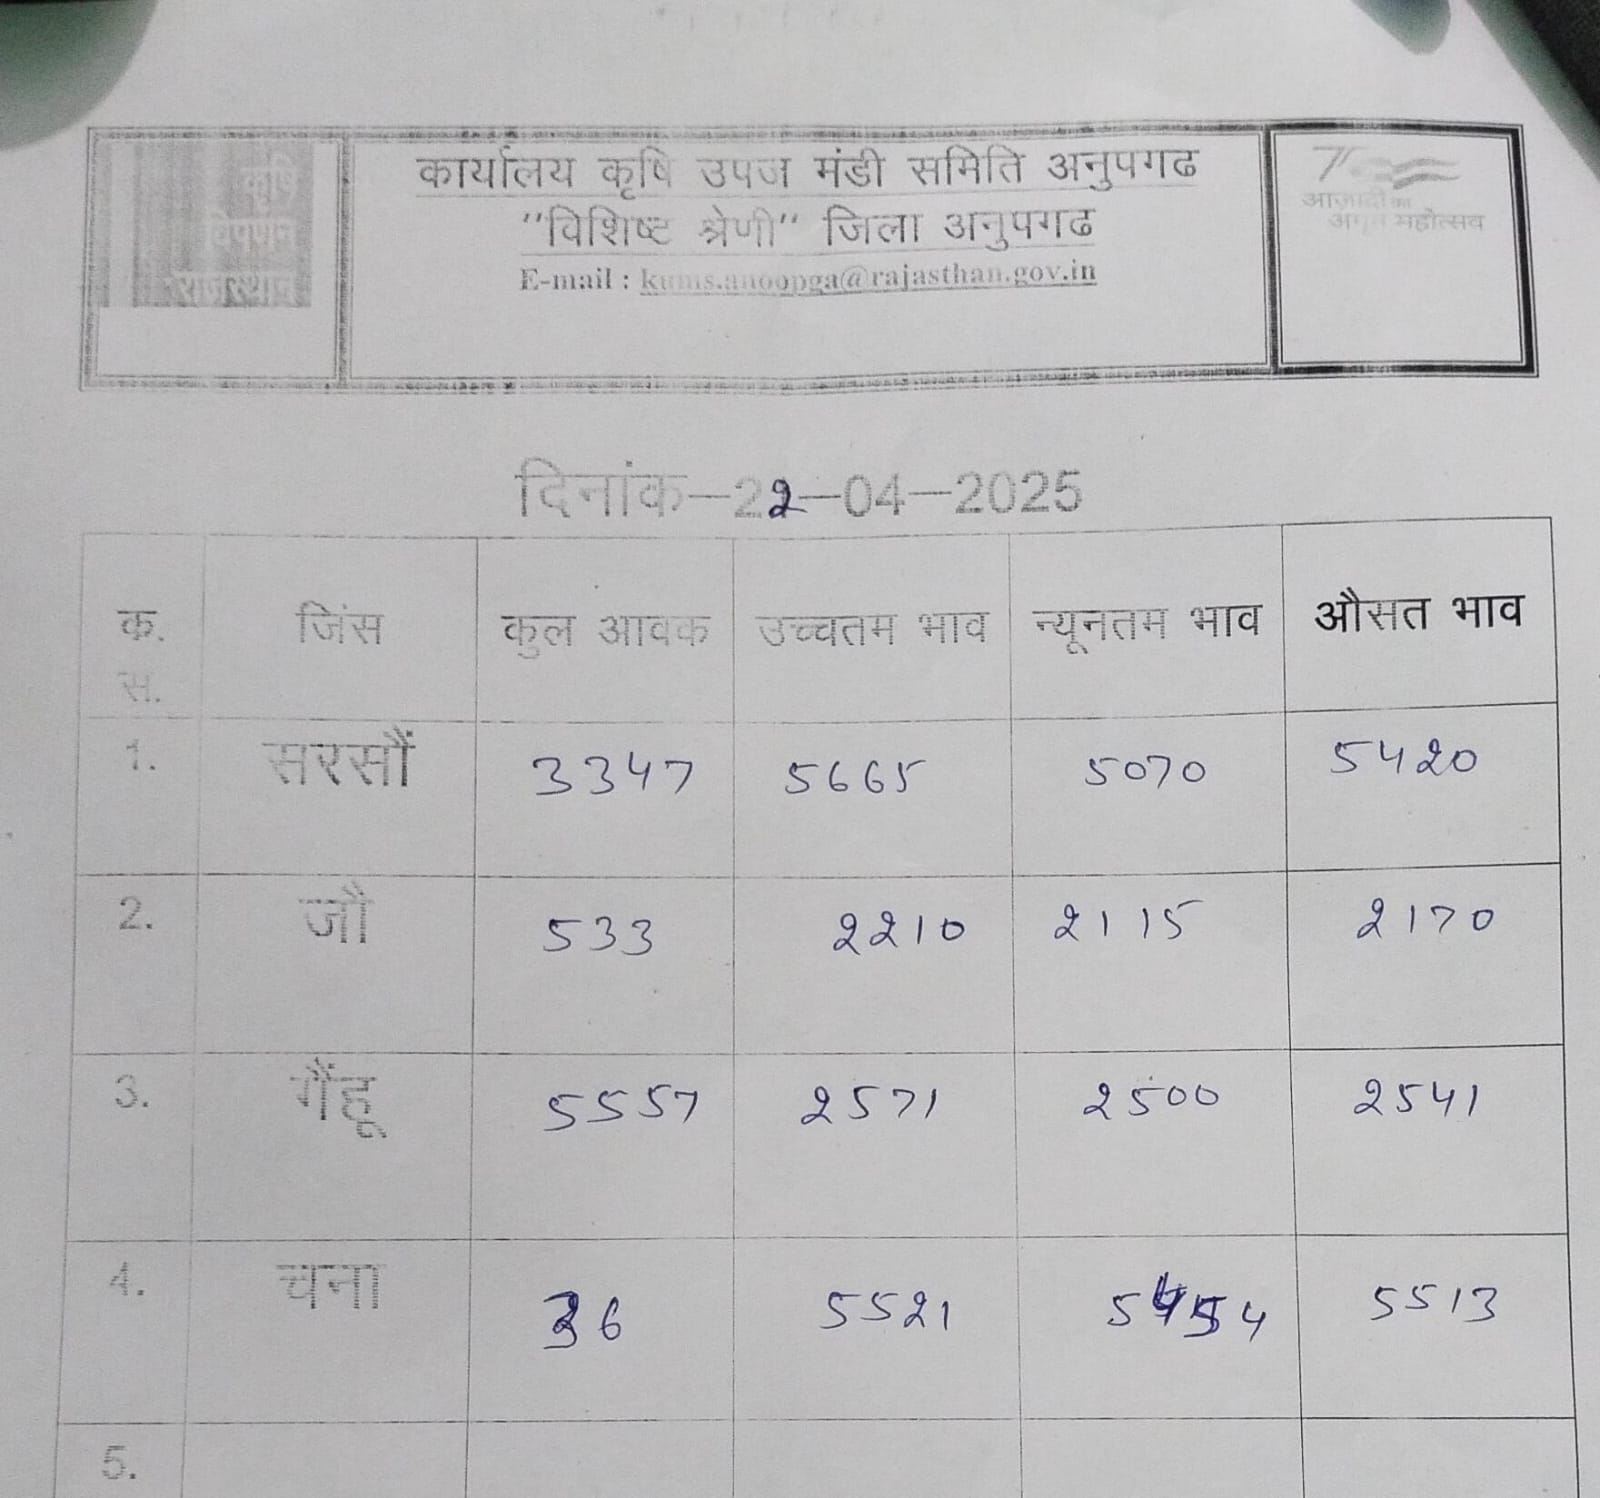 कृषि
विपणन
राजस्थान
कार्यालय कृषि उपज मंडी समिति अनुपगढ
"विशिष्ट श्रेणी" जिला अनुपगढ
E-mail : kums.anoopga@rajasthan.gov.in
आज़ादी का
अमृत महोत्सव
दिनांक—22—04—2025
क. स. जिंस कुल आवक उच्चतम भाव न्यूनतम भाव औसत भाव
1. सरसौं 3347 5665 5070 5420
2. जौ 533 2210 2115 2170
3. गैंहू 5557 2571 2500 2541
4. चना 36 5521 5454 5513
5.